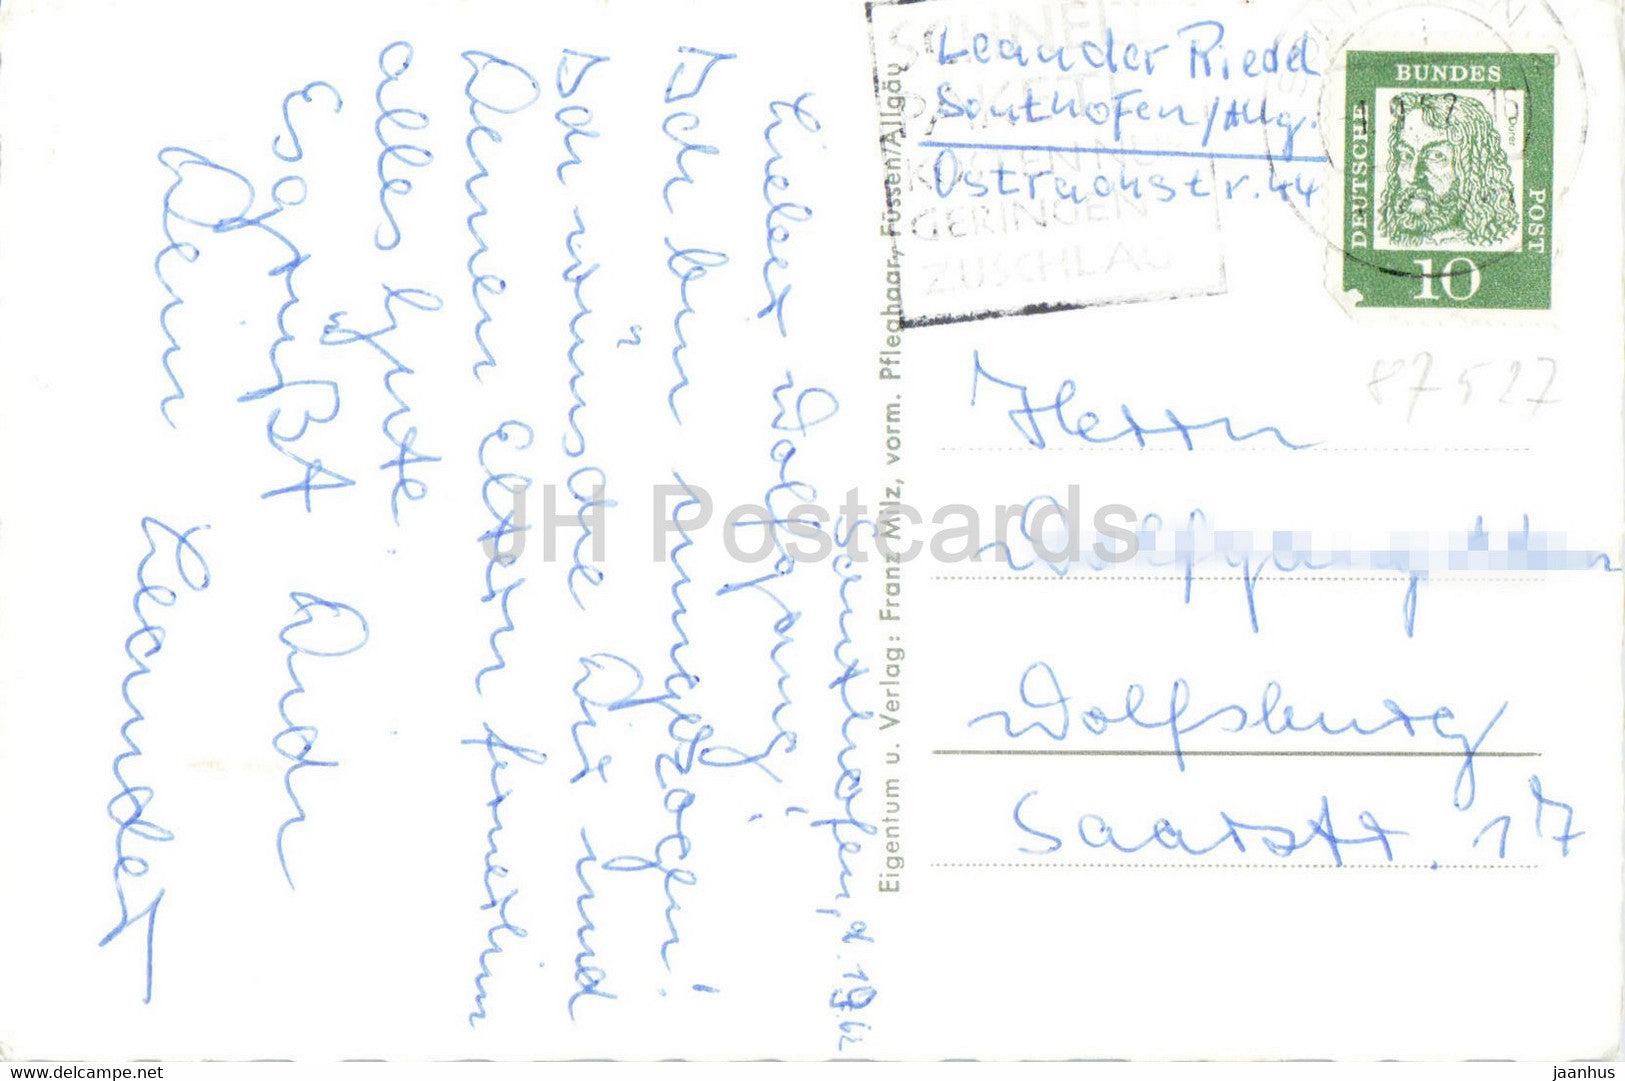 Sonthofen, d. 1.9.62
Lieber Wolfgang!
Ich bin umgezogen!
Ich wünsche Dir und
Deinen Eltern fernerhin
alles Gute.
Es grüßt Dich
Dein Leander
Eigentum u. Verlag: Franz Milz, vorm. Pfleghaar, Füssen/Allgäu
Leander Riedel
Sonthofen/Allg.
Ostrachstr. 44
SCHNELL
PAKET
KOSTEN NUR
GERINGEN
ZUSCHLAG
1.9.62-16
DEUTSCHE
BUNDES
POST
Dürer
10
87527
Herrn
Wolfgang
Wolfsburg
Saarstr. 17
JH Postcards
www.delcampe.net
jaanhus